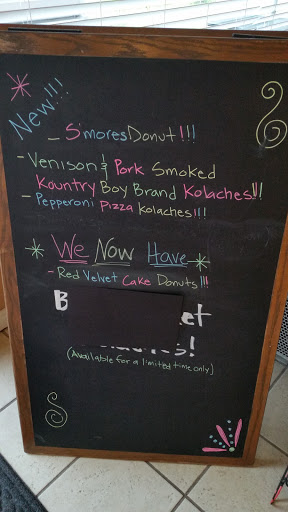 New!!!
- S'mores Donut!!!
- Venison & Pork Smoked
Kountry Boy Brand Kolaches!!!
- Pepperoni Pizza Kolaches!!!
We Now Have
- Red Velvet Cake Donuts!!!
(Available for a limited time only)